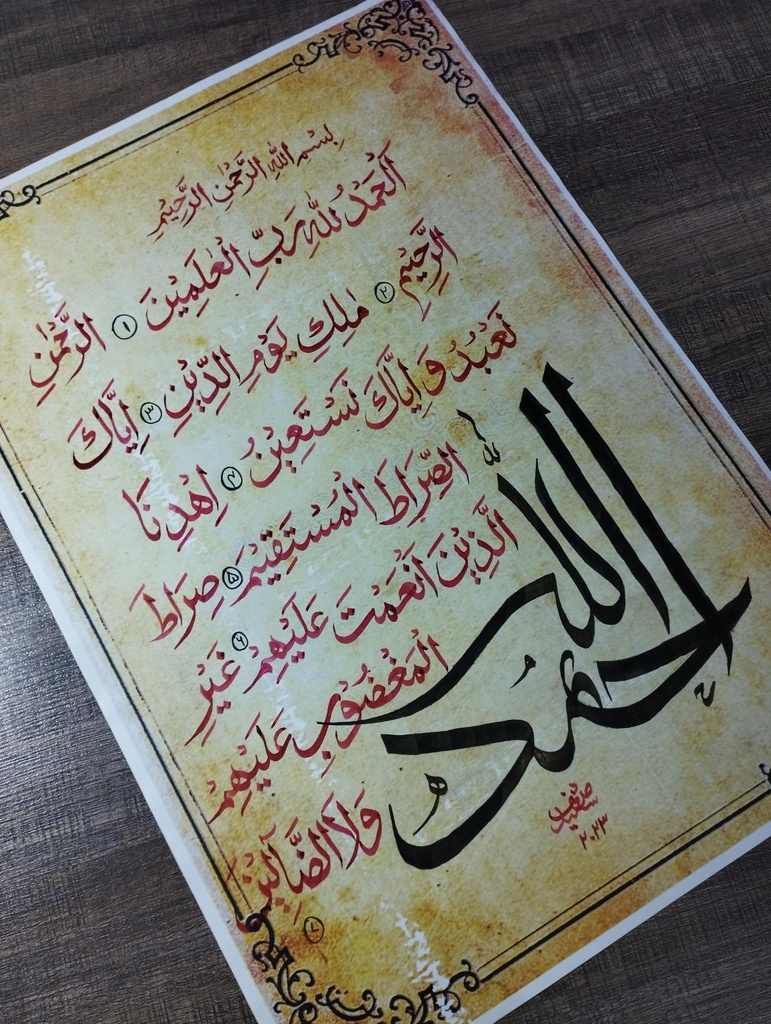 بِسْمِ اللهِ الرَّحْمٰنِ الرَّحِيْمِ
اَلْحَمْدُ لِلّٰهِ رَبِّ الْعٰلَمِيْنَ ۱ الرَّحْمٰنِ
الرَّحِيْمِ ۲ مٰلِكِ يَوْمِ الدِّيْنِ ۳ اِيَّاكَ
نَعْبُدُ وَ اِيَّاكَ نَسْتَعِيْنُ ۴ اِهْدِنَا
الصِّرَاطَ الْمُسْتَقِيْمَ ۵ صِرَاطَ
الَّذِيْنَ اَنْعَمْتَ عَلَيْهِمْ ۶ غَيْرِ
الْمَغْضُوْبِ عَلَيْهِمْ
وَلَا الضَّآلِّيْنَ ۷
الحمد لله
۲۰۲۳